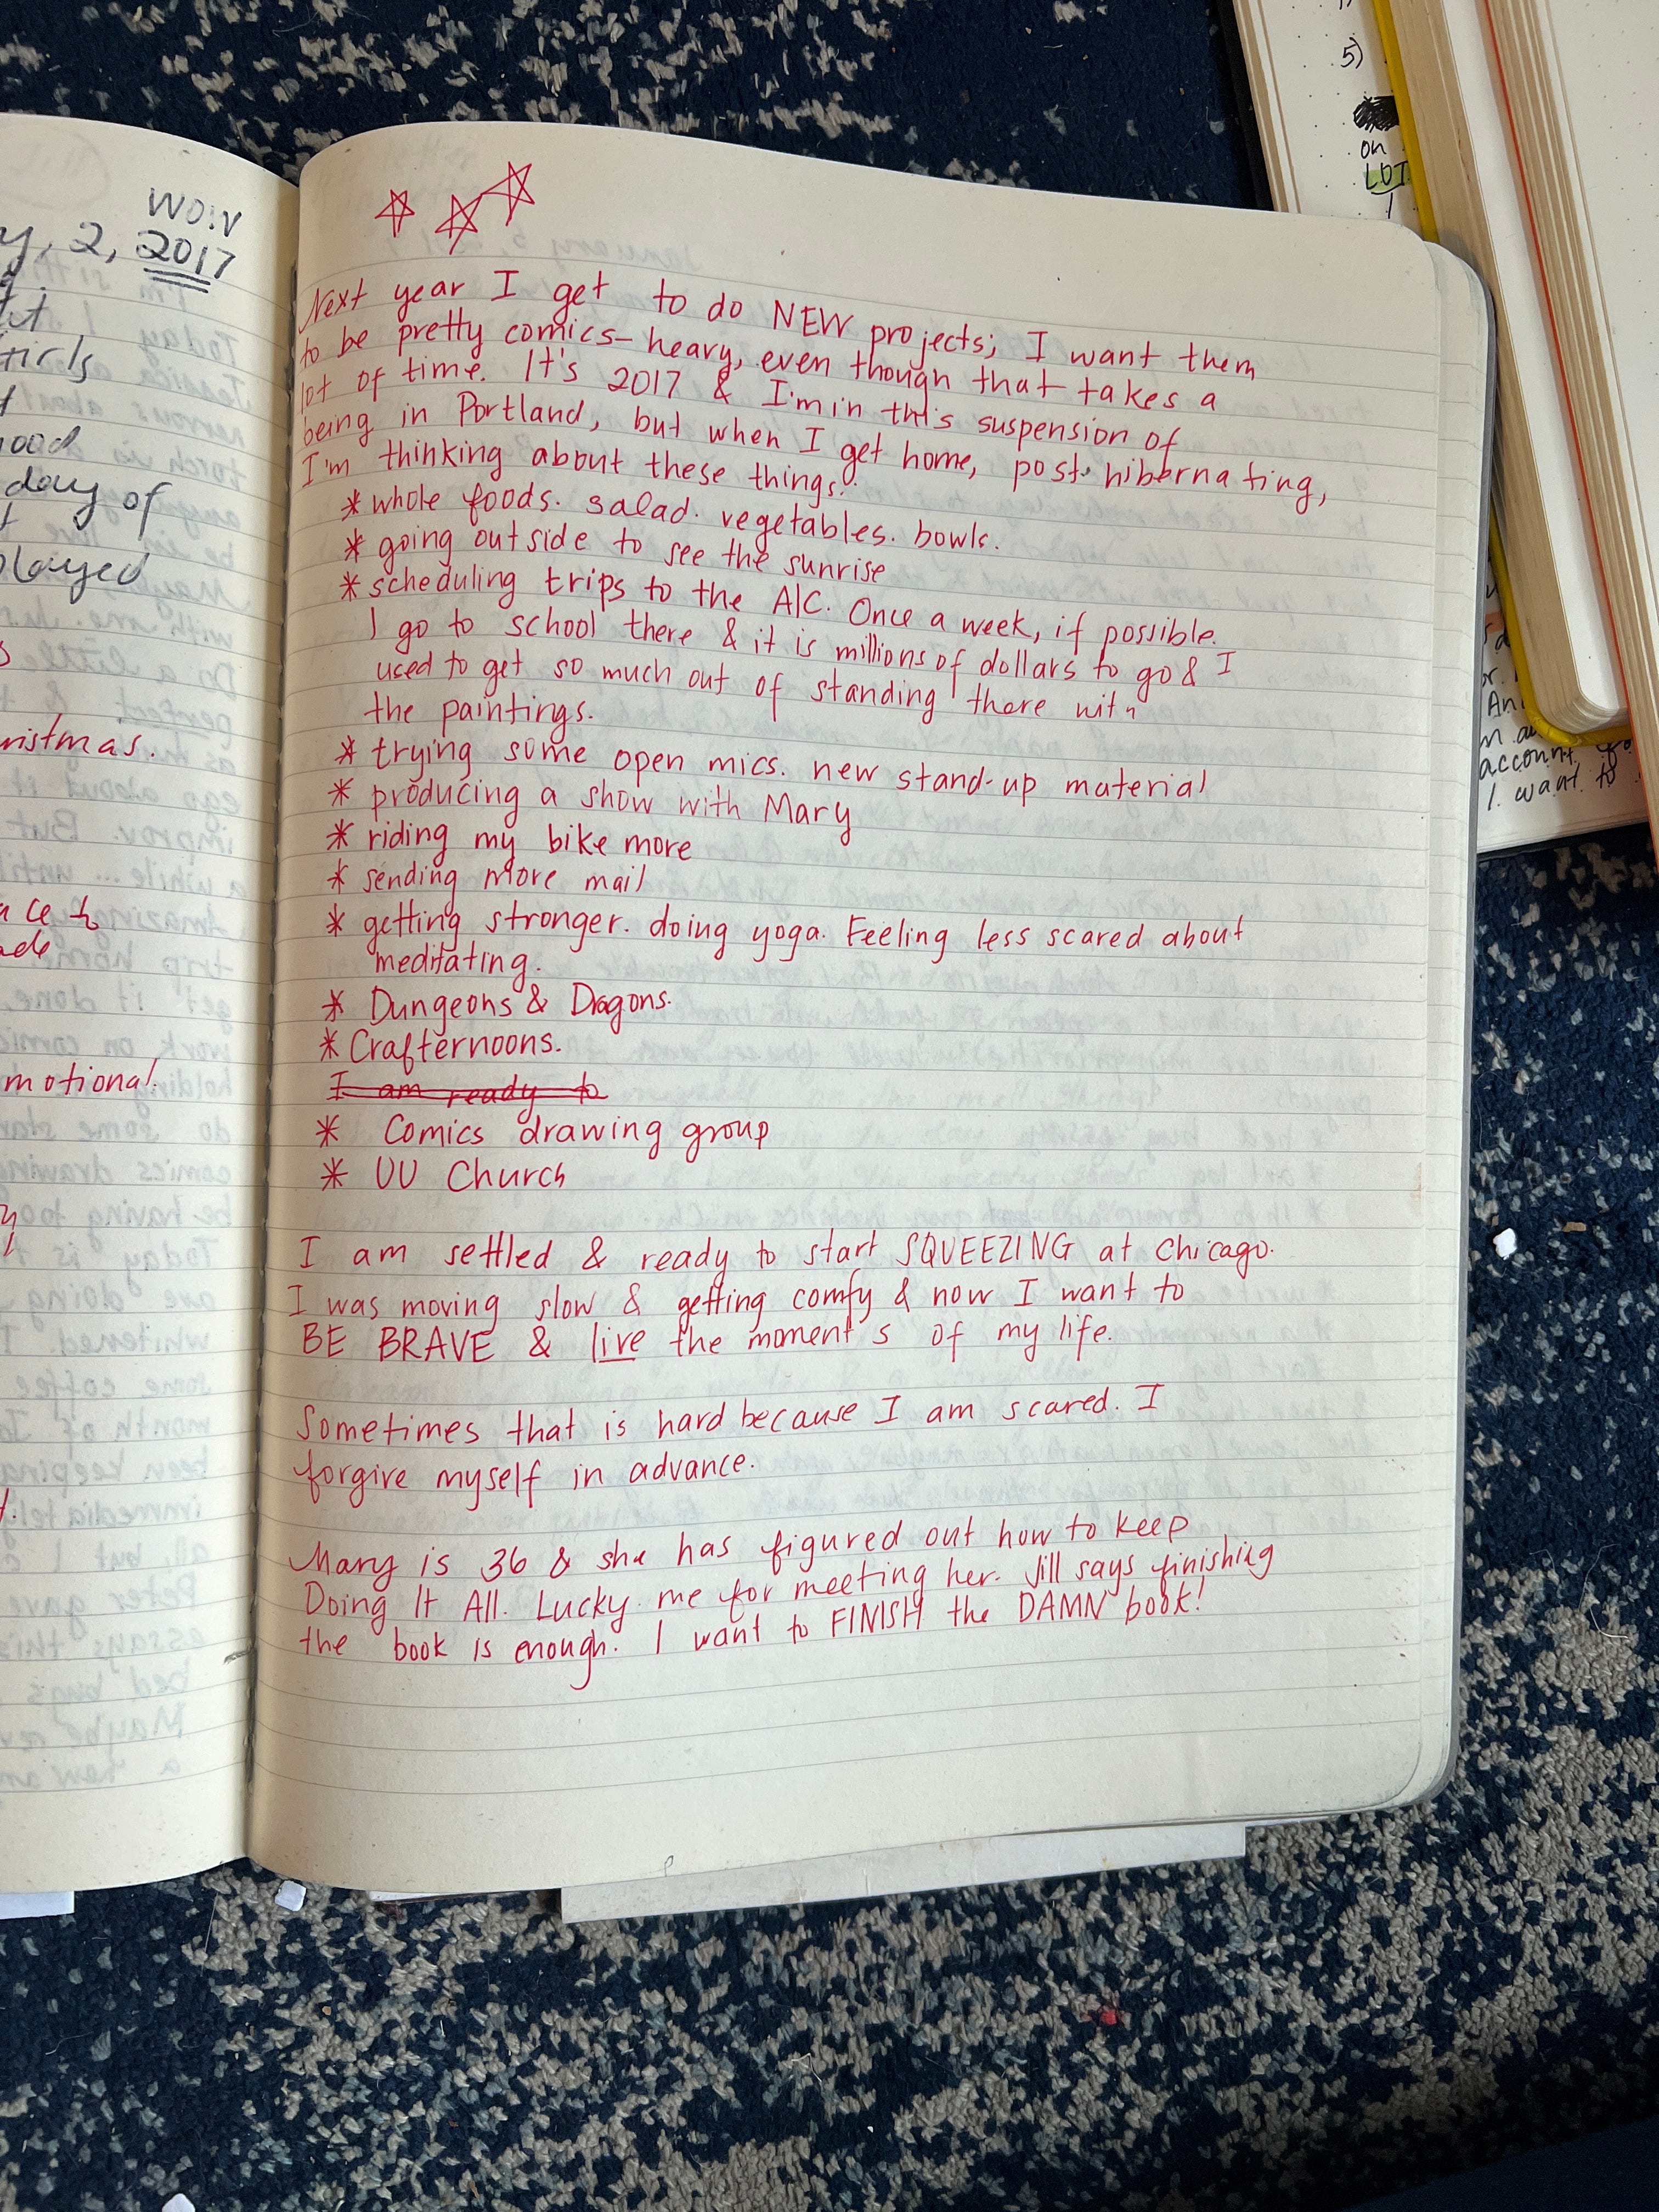 WOW
y, 2, 2017
tirls
ood
day of
played
ristmas.
ce to
ade
motional.
Next year I get to do NEW projects; I want them
to be pretty comics-heavy, even though that takes a
lot of time. It's 2017 & I'm in this suspension of
being in Portland, but when I get home, post-hibernating,
I'm thinking about these things:
* whole foods. salad. vegetables. bowls.
* going outside to see the sunrise
* scheduling trips to the AIC. Once a week, if possible.
I go to school there & it is millions of dollars to go & I
used to get so much out of standing there with
the paintings.
* trying some open mics. new stand-up material
* producing a show with Mary
* riding my bike more
* sending more mail
* getting stronger. doing yoga. Feeling less scared about
meditating.
* Dungeons & Dragons.
* Crafternoons.
I am ready to
* Comics drawing group
* UU Church
I am settled & ready to start SQUEEZING at Chicago.
I was moving slow & getting comfy & now I want to
BE BRAVE & live the moments of my life.
Sometimes that is hard because I am scared. I
forgive myself in advance.
Mary is 36 & she has figured out how to keep
Doing It All. Lucky me for meeting her. Jill says finishing
the book is enough. I want to FINISH the DAMN book!
5)
on
LDT
account
I want to